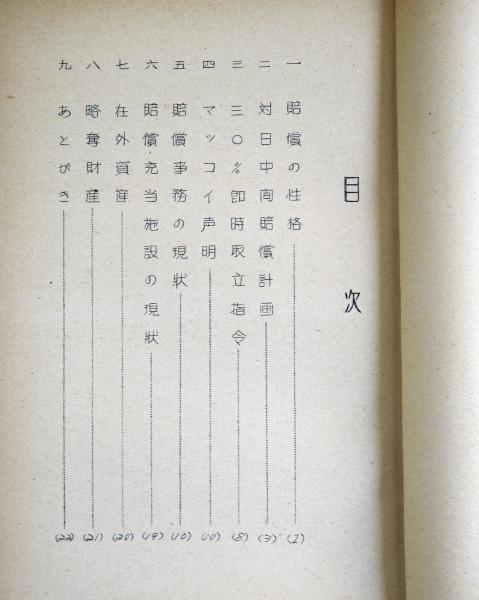 目次
一 賠償の性格 (1)
二 対日中間賠償計画 (3)
三 三〇%即時取立指令 (8)
四 マッコイ声明 (10)
五 賠償事務の現状 (16)
六 賠償充当施設の現状 (19)
七 在外資産 (20)
八 略奪財産 (21)
九 あとがき (22)